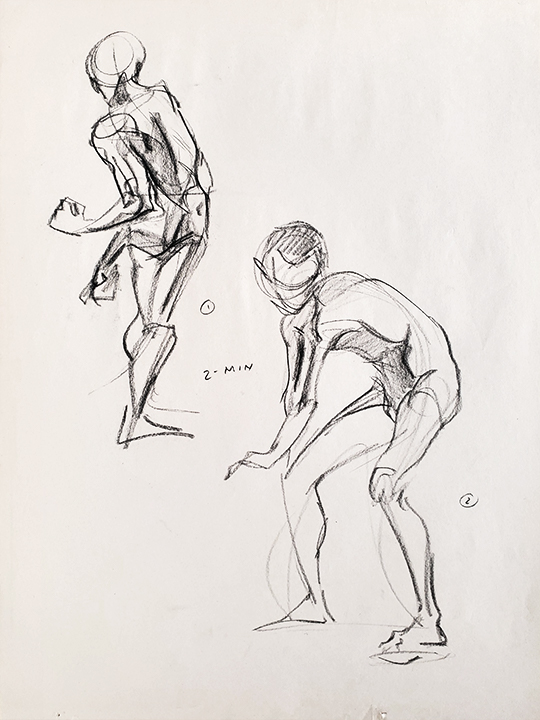 1
2-MIN
2